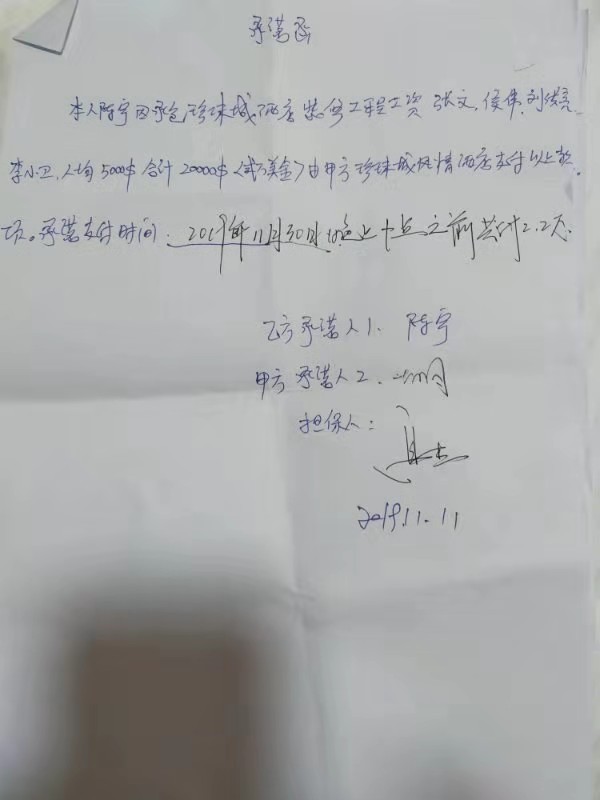 承诺函
本人陈宇因承包珍珠城酒店装修工程工资 张文、侯伟、刘洪亮、
李小卫、人均5000$合计20000$〈贰万美金〉由甲方珍珠城 酒店支付以上款
项。承诺支付时间: 2019年11月30日 止 点之前共计 天
乙方承诺人1、陈宇
甲方承诺人2、
担保人:
2019.11.11